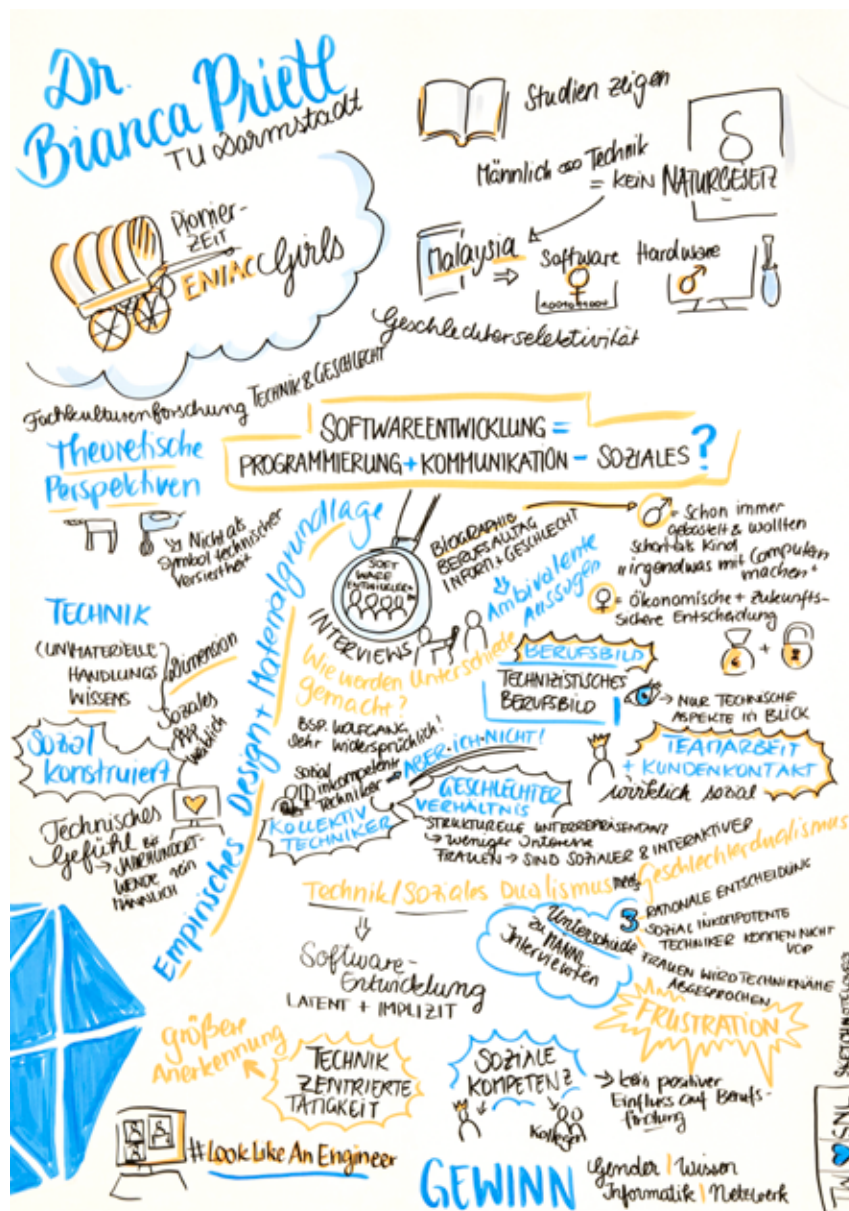 Dr.
Bianca Prietl
TU Darmstadt
Studien zeigen
Männlich Technik
= KEIN NATURGESETZ
§
Pionier-
ZEIT
ENIAC Girls
Malaysia
Software
Hardware
Geschlechterselektivität
Fachkulturenforschung TECHNIK & GESCHLECHT
Theoretische
Perspektiven
SOFTWAREENTWICKLUNG =
PROGRAMMIERUNG + KOMMUNIKATION - SOZIALES ?
Nicht als
Symbol technischer
Versiertheit
TECHNIK
(UN)MATERIELLE
HANDLUNGS
WISSENS
Dimension
Soziales
weiblich
Sozial
konstruiert
Technisches
Gefühl BIS
→ JAHRHUNDERT-
WENDE REIN
MÄNNLICH
Empirisches Design + Materialgrundlage
SOFT
WARE
ENTWICKLER
INTERVIEWS
BIOGRAPHIE
BERUFSALLTAG
INFORM. + GESCHLECHT
Ambivalente
Aussagen
♂ = Schon immer
gebastelt & wollten
schon als Kind
"irgendwas mit Computern
machen"
♀ = Ökonomische + Zukunfts-
sichere Entscheidung
€ +
Wie werden Unterschiede
gemacht?
BSP. WOLFGANG
Sehr widersprüchlich!
Sozial
inkompetente
Techniker → ABER ICH NICHT!
KOLLEKTIV
TECHNIKER
BERUFSBILD
TECHNIZISTISCHES
BERUFSBILD
→ NUR TECHNISCHE
ASPEKTE IN BLICK
TEAMARBEIT
+ KUNDENKONTAKT
wirklich sozial
GESCHLECHTER
VERHÄLTNIS
STRUKTURELLE UNTERREPRÄSENTANZ
→ Weniger Interesse
FRAUEN → SIND SOZIALER & INTERAKTIVER
Technik/Soziales Dualismus meets Geschlechterdualismus
Software-
Entwicklung
LATENT + IMPLIZIT
Unterschiede
zu MÄNNL.
Interviewten
3
RATIONALE ENTSCHEIDUNG
SOZIAL INKOMPETENTE
TECHNIKER KOMMEN NICHT
VOR
FRAUEN WIRD TECHNIKNÄHE
ABGESPROCHEN
FRUSTRATION
größere
Anerkennung
TECHNIK
ZENTRIERTE
TÄTIGKEIT
SOZIALE
KOMPETENZ
Kollegen
→ kein positiver
Einfluss auf Berufs-
findung
#Look Like An Engineer
GEWINN
Gender | Wissen
Informatik | Netzwerk
SNL